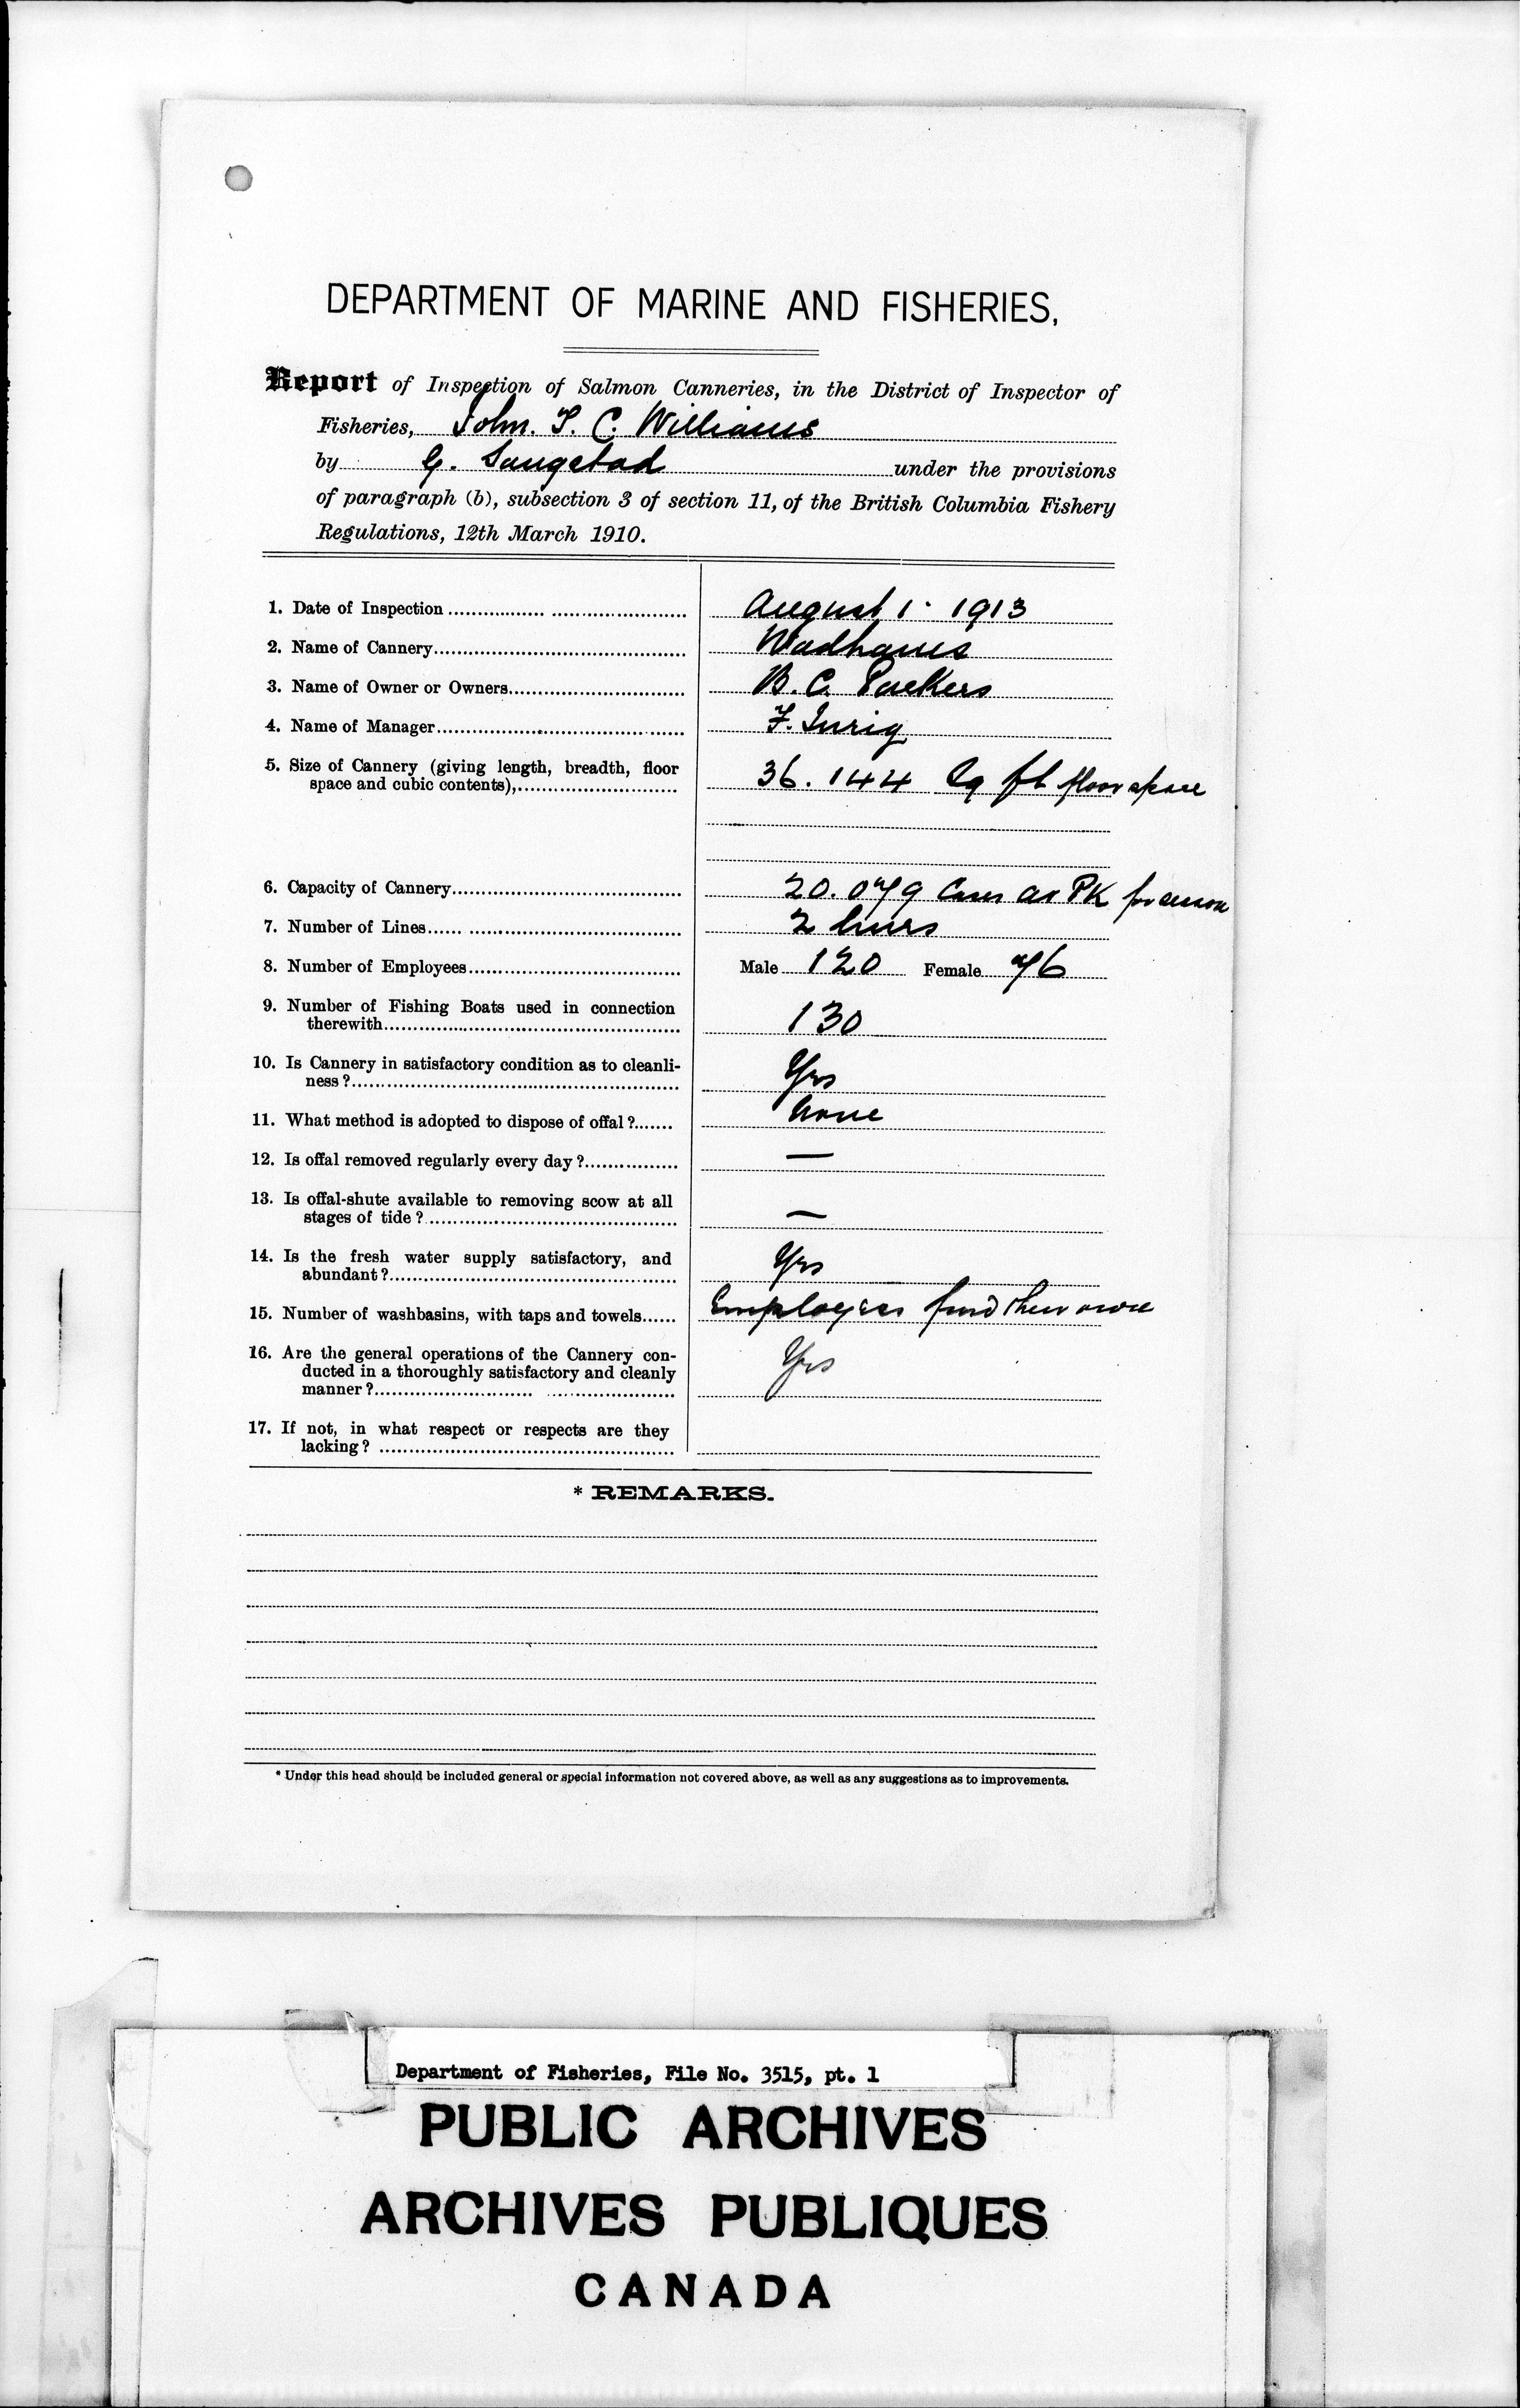 DEPARTMENT OF MARINE AND FISHERIES,
Report of Inspection of Salmon Canneries, in the District of Inspector of
Fisheries, John. T. C. Williams
by G. Saugstad under the provisions
of paragraph (b), subsection 3 of section 11, of the British Columbia Fishery
Regulations, 12th March 1910.
1. Date of Inspection August 1. 1913
2. Name of Cannery Wadhams
3. Name of Owner or Owners B. C. Packers
4. Name of Manager F. Inrig
5. Size of Cannery (giving length, breadth, floor
space and cubic contents), 36.144 Sq ft floor space
6. Capacity of Cannery 20.079 Cases as PK for season
7. Number of Lines 2 lines
8. Number of Employees Male 120 Female 76
9. Number of Fishing Boats used in connection
therewith 130
10. Is Cannery in satisfactory condition as to cleanli-
ness? Yes
11. What method is adopted to dispose of offal? None
12. Is offal removed regularly every day? —
13. Is offal-shute available to removing scow at all
stages of tide? —
14. Is the fresh water supply satisfactory, and
abundant? Yes
15. Number of washbasins, with taps and towels Employees find their own
16. Are the general operations of the Cannery con-
ducted in a thoroughly satisfactory and cleanly
manner? Yes
17. If not, in what respect or respects are they
lacking?
* REMARKS.
* Under this head should be included general or special information not covered above, as well as any suggestions as to improvements.
Department of Fisheries, File No. 3515, pt. 1
PUBLIC ARCHIVES
ARCHIVES PUBLIQUES
CANADA